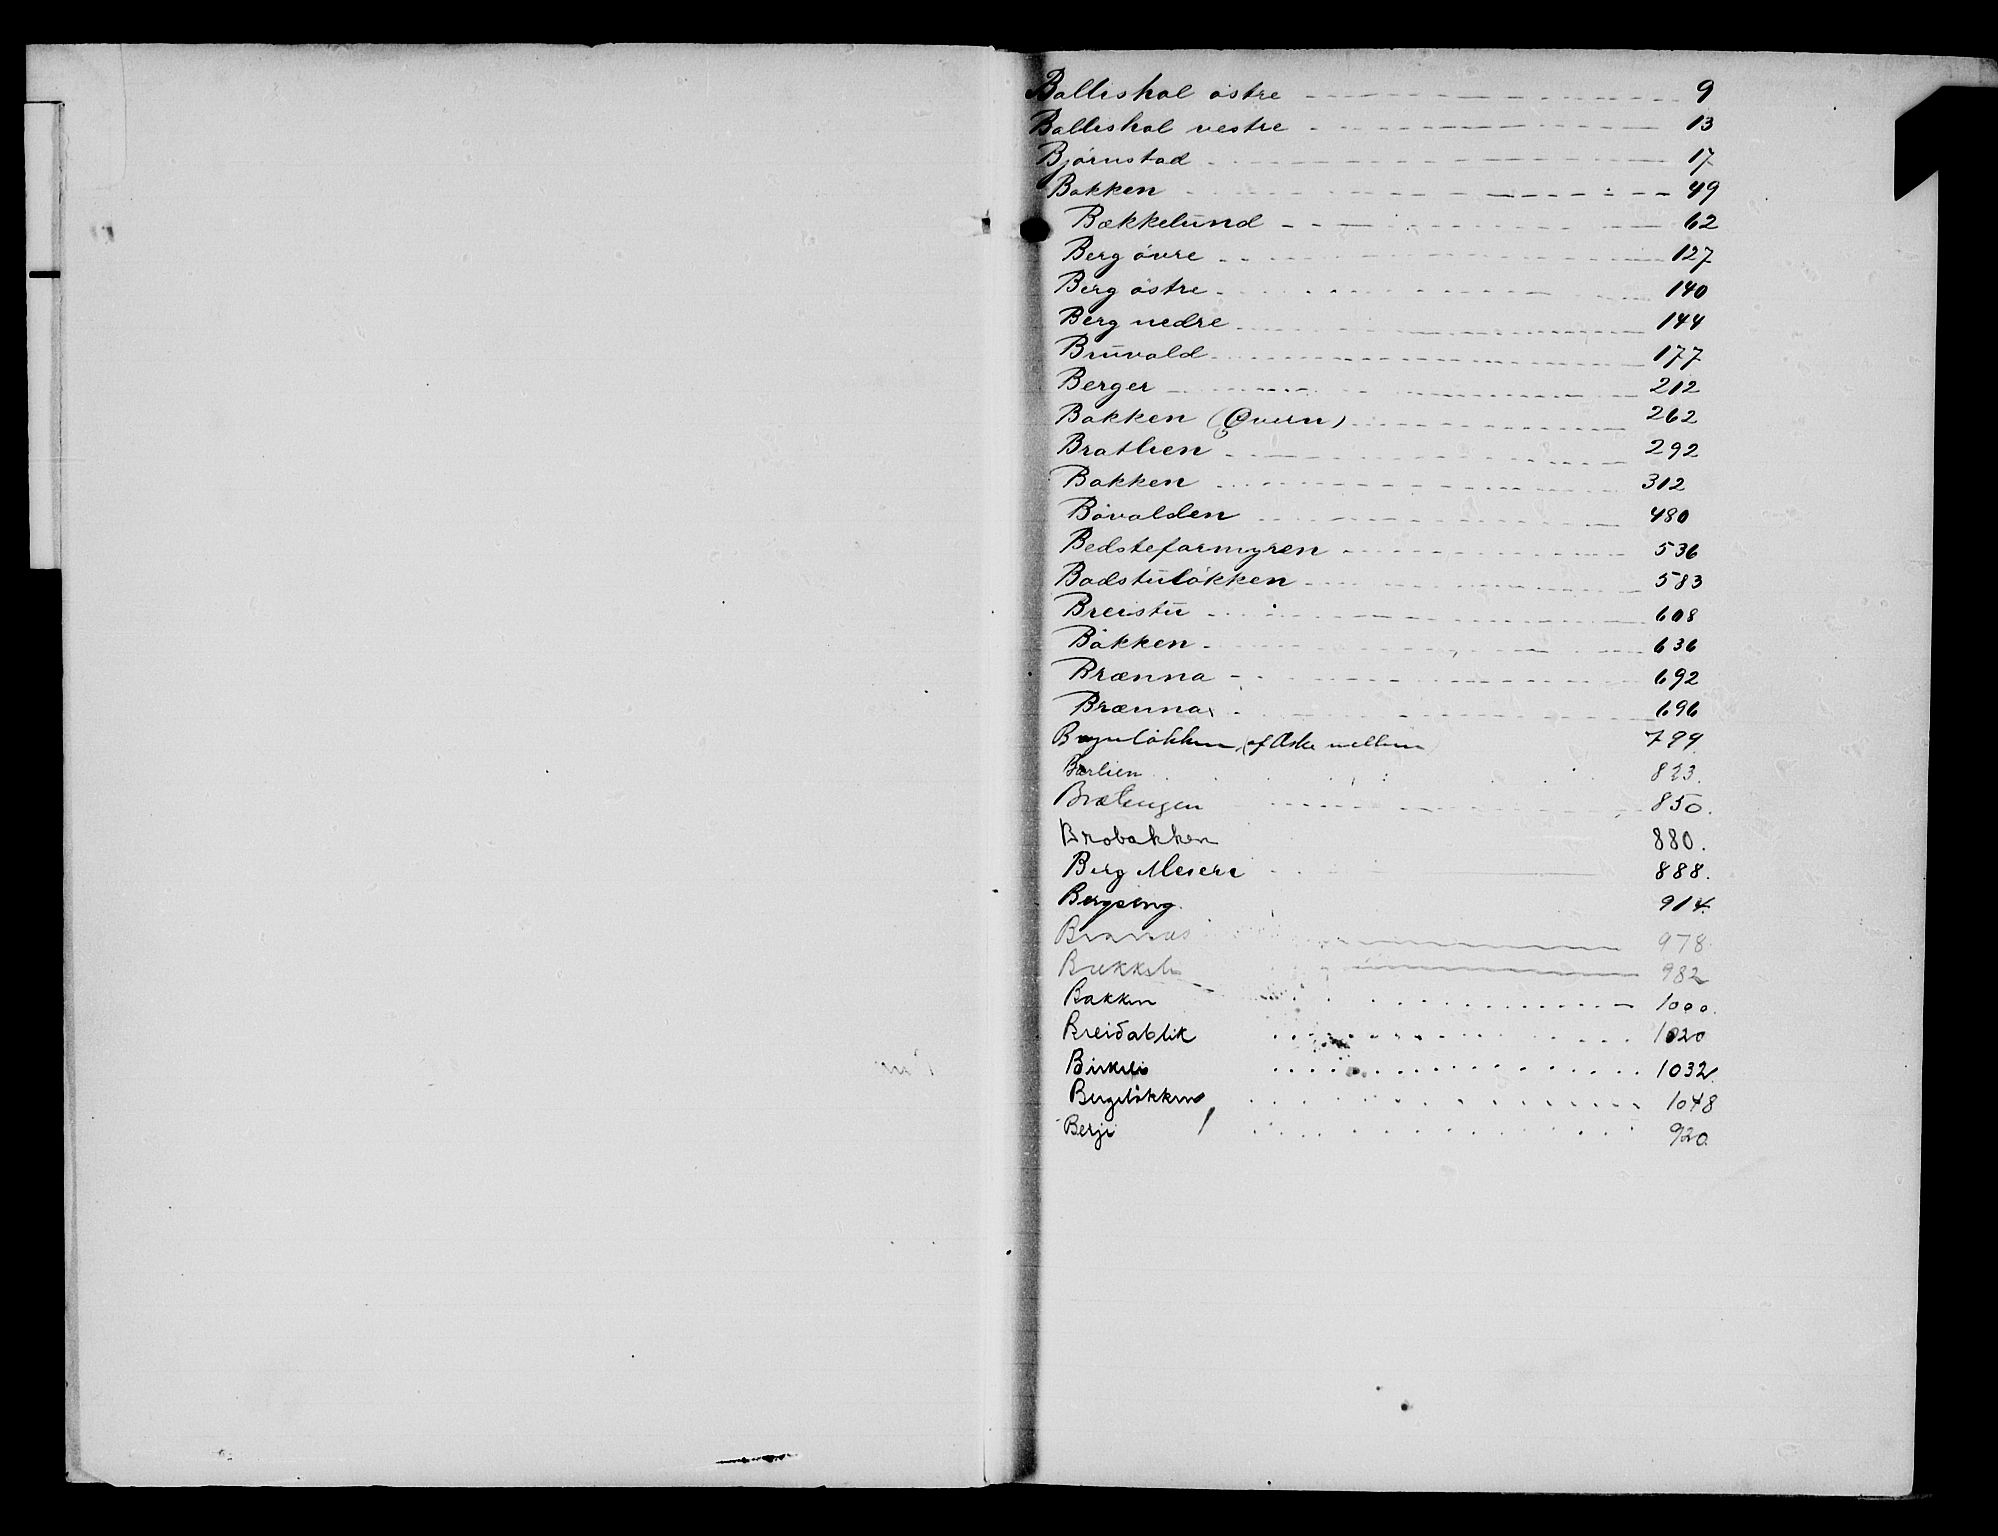 Balliskol østre 9
Balliskol vestre 13
Bjørnstad 17
Bakken 49
Bækkelund 62
Berg øvre 127
Berg østre 140
Berg nedre 144
Bruvold 177
Berger 212
Bakken (Øvern) 262
Bratlien 292
Bakken 312
Bøvolden 480
Bedstefarmyren 536
Badstuløkken 583
Breistu 608
Bakken 636
Brænna 692
Brænna 696
(af Aske mellem 799
Bærlien 823.
Brætengen 850.
Brobakken 880.
Berg Mesere 888.
Bergseng 914.
978
982
Bakken 1000.
Breidablik 1020
Birkeli 1032.
Bergeløkken 1048
920